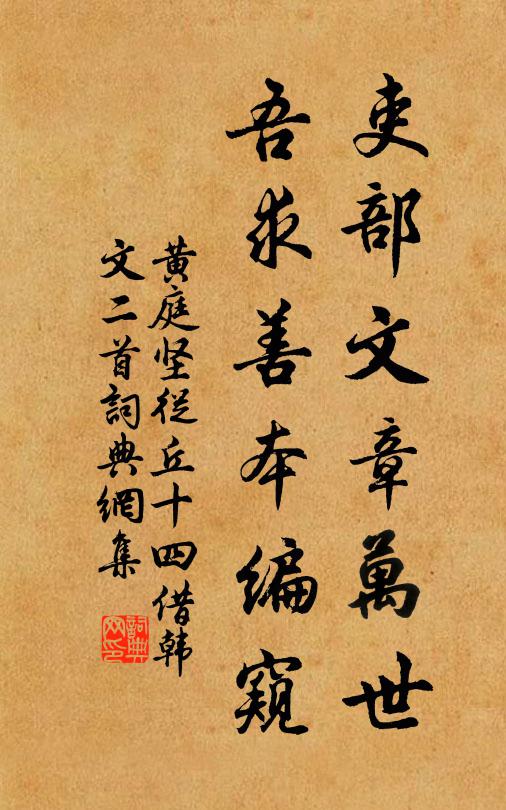 吏部文章萬世
吾求善本編窺
黄庭坚從丘十四借韩
文二首詞典網集
詞典網印